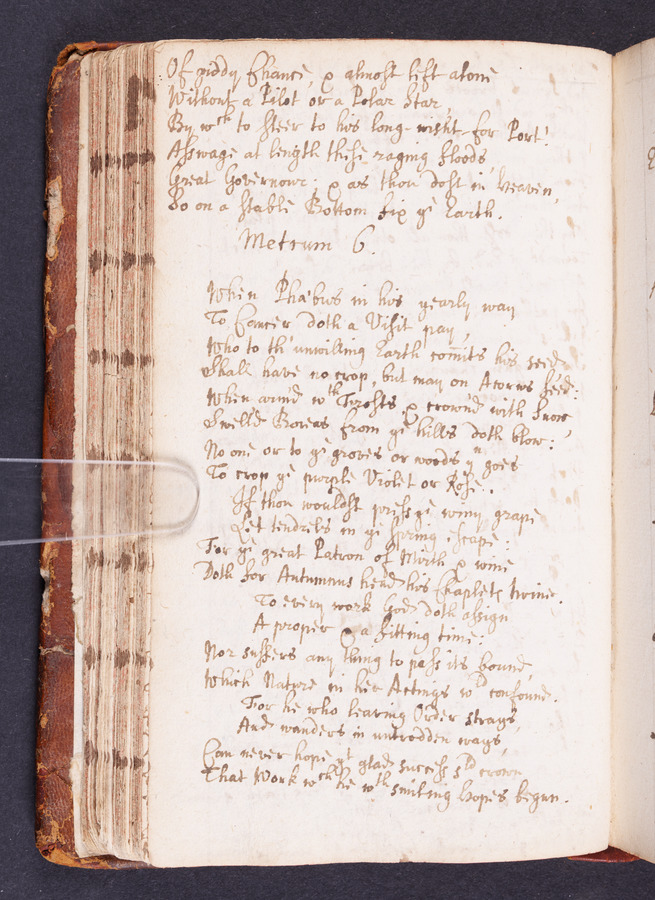 Of giddy Chance, & almost left alone
Without a Pilot or a Polar Star,
By wch to steer to his long-wisht for Port!
Asswage at length these raging floods
Great Governour; & as thou dost in Heaven,
So on a stable Bottom fix ye Earth.
Metrum 6.
When Phæbus in his yearly way
To Cancer doth a Visit pay,
Who to th' unwilling Earth com̄its his seed
Shall have no crop, but may on Acorns feed:
When arm'd wth Frosts & crown'd with Snow,
Swell'd Boreas from ye hills doth blow:
No one or to ye groves or woods yn goes
To crop ye purple Violet or Rose.
If thou wouldst press ye winy grape
Let tendrels in ye Spring escape:
For ye great Patron of Mirth & wine
Doth for Autumnus head his Chaplets twine.
To every work God doth assign
A proper & a fitting time:
Nor suffers any thing to pass its bound,
Which Nature in her Actings wld confound.
For he who leaving Order strays,
And wanders in untrodden ways,
Can never hope yt glad success shd crown
That Work wch he wth smiling hopes begun.